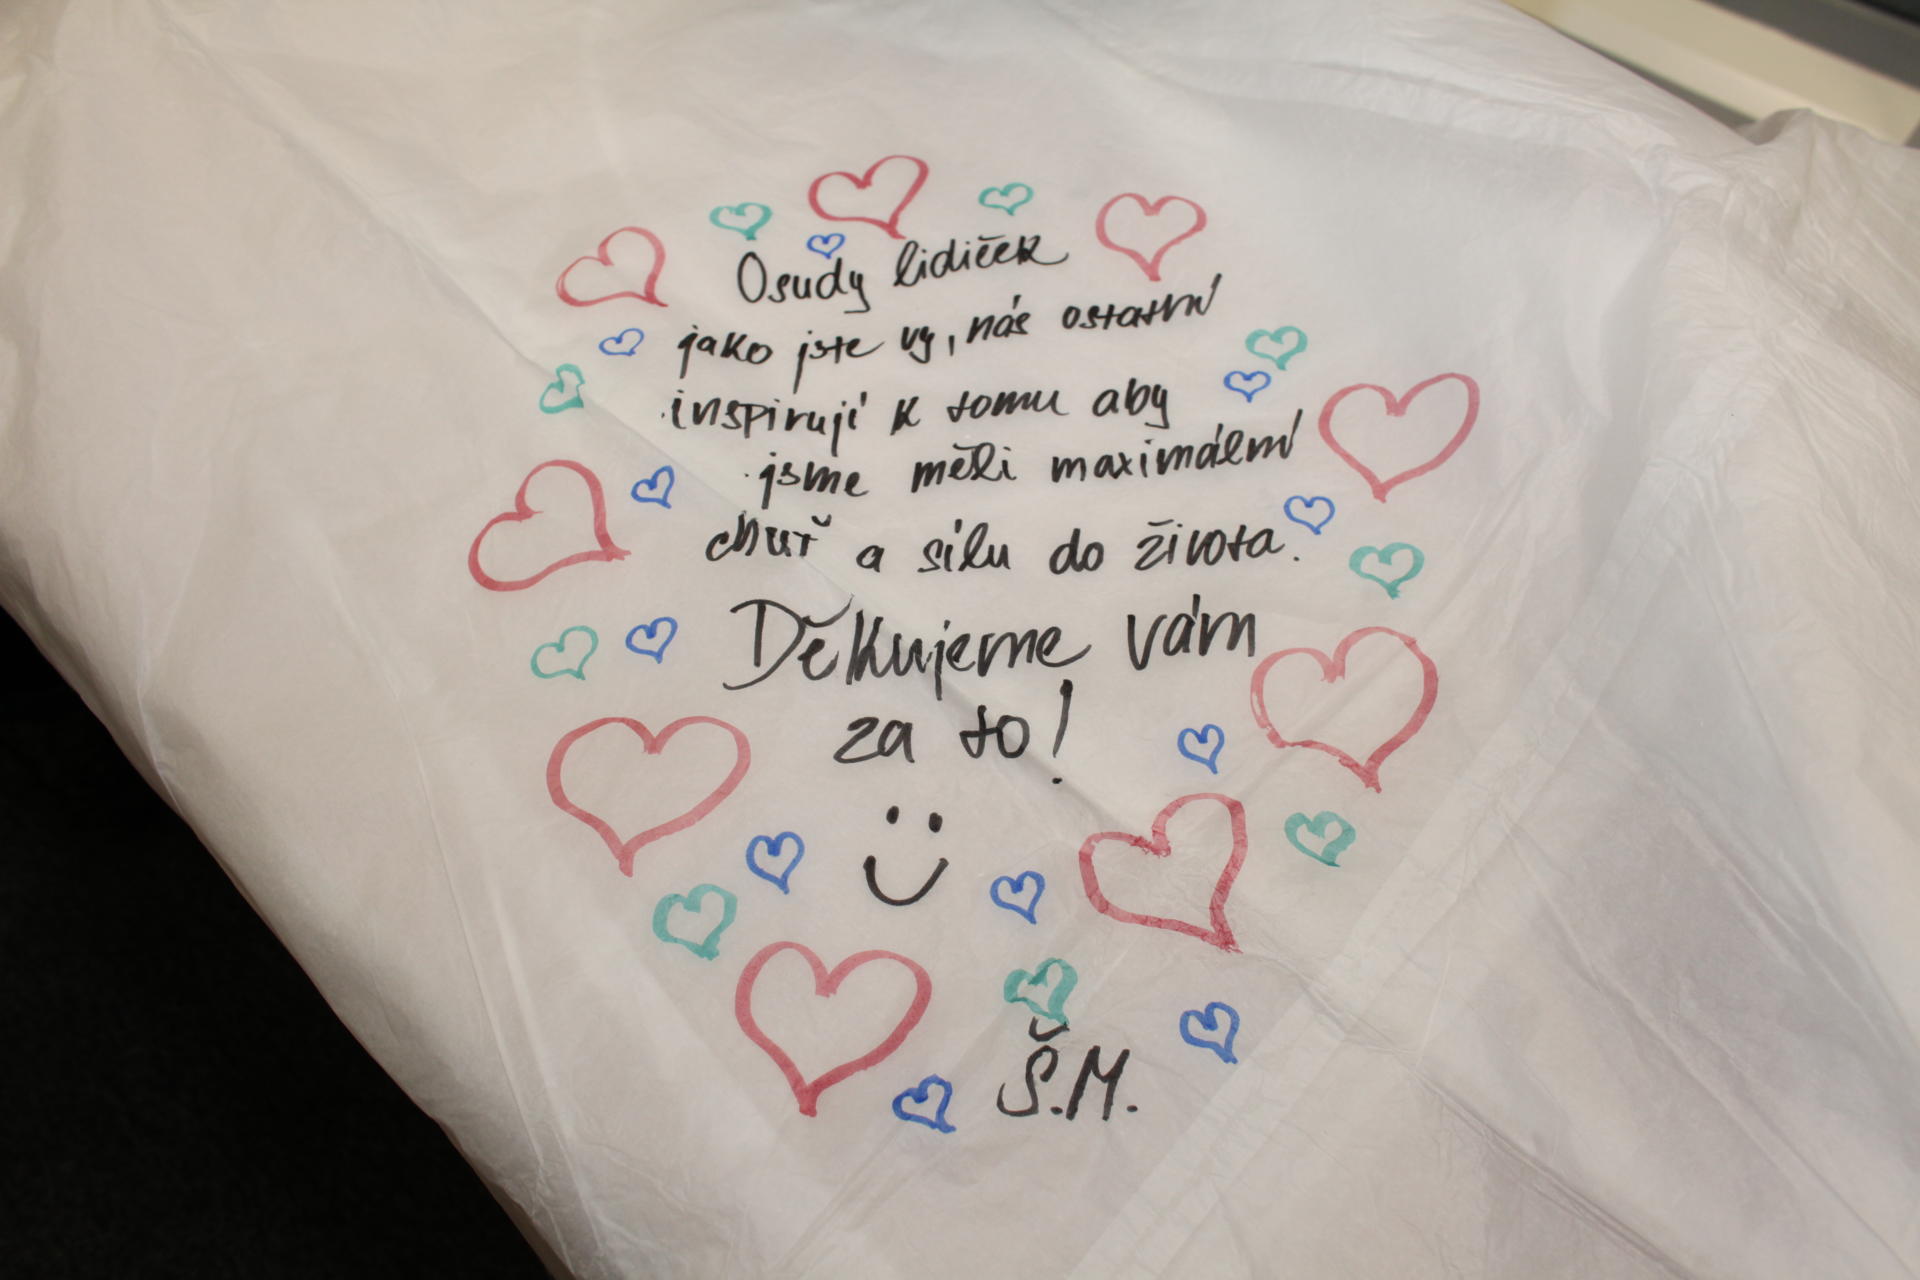 Osudy lidiček
jako jste vy, nás ostatní
inspirují k tomu aby
jsme měli maximální
chuť a sílu do života.
Děkujeme vám
za to!
Š.M.